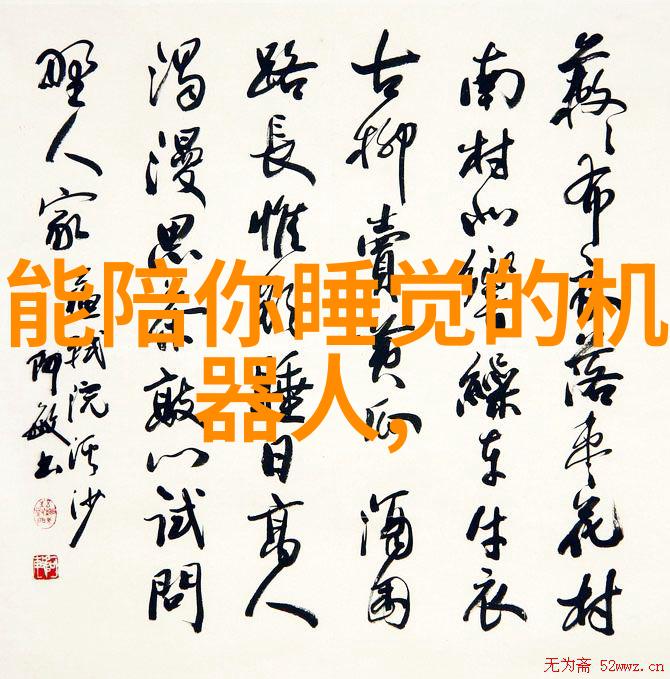 能陪你睡觉的机
器人,
蔌〻布衣落枣花村
南村北響繰车牛衣
古柳賣黄瓜酒困
路長惟欲睡日高人
渴漫思茶敲门试問
野人家 蘇軾浣溪沙
敏书
无为斋 52wwz.cn